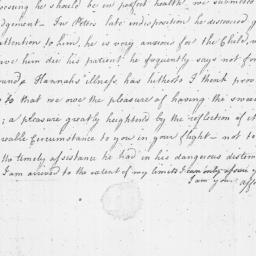 he should be in perfect health
judgement - In Peters late indisposition he discovered g
attention to him, he is very anxious for the Child,
have him die his patient, he frequently says not for
Hannahs illness has hitherto I think prov
to that we owe the pleasure of having the
; a pleasure greatly heightened by the reflection of
Circumstance to you in your flight - not to
the timely assistance he had in his dangerous
I am arrived to the extent of my limits I can only
I am your